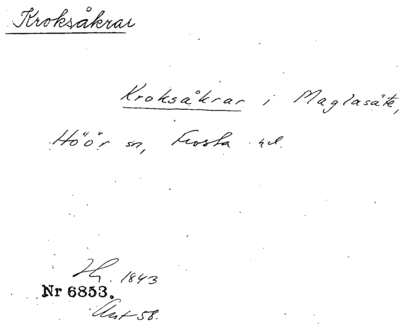 Kroksåkrar
Kroksåkrar i Maglasäte,
Höör sn, Frosta hd.
1843
Nr 6853.
58.